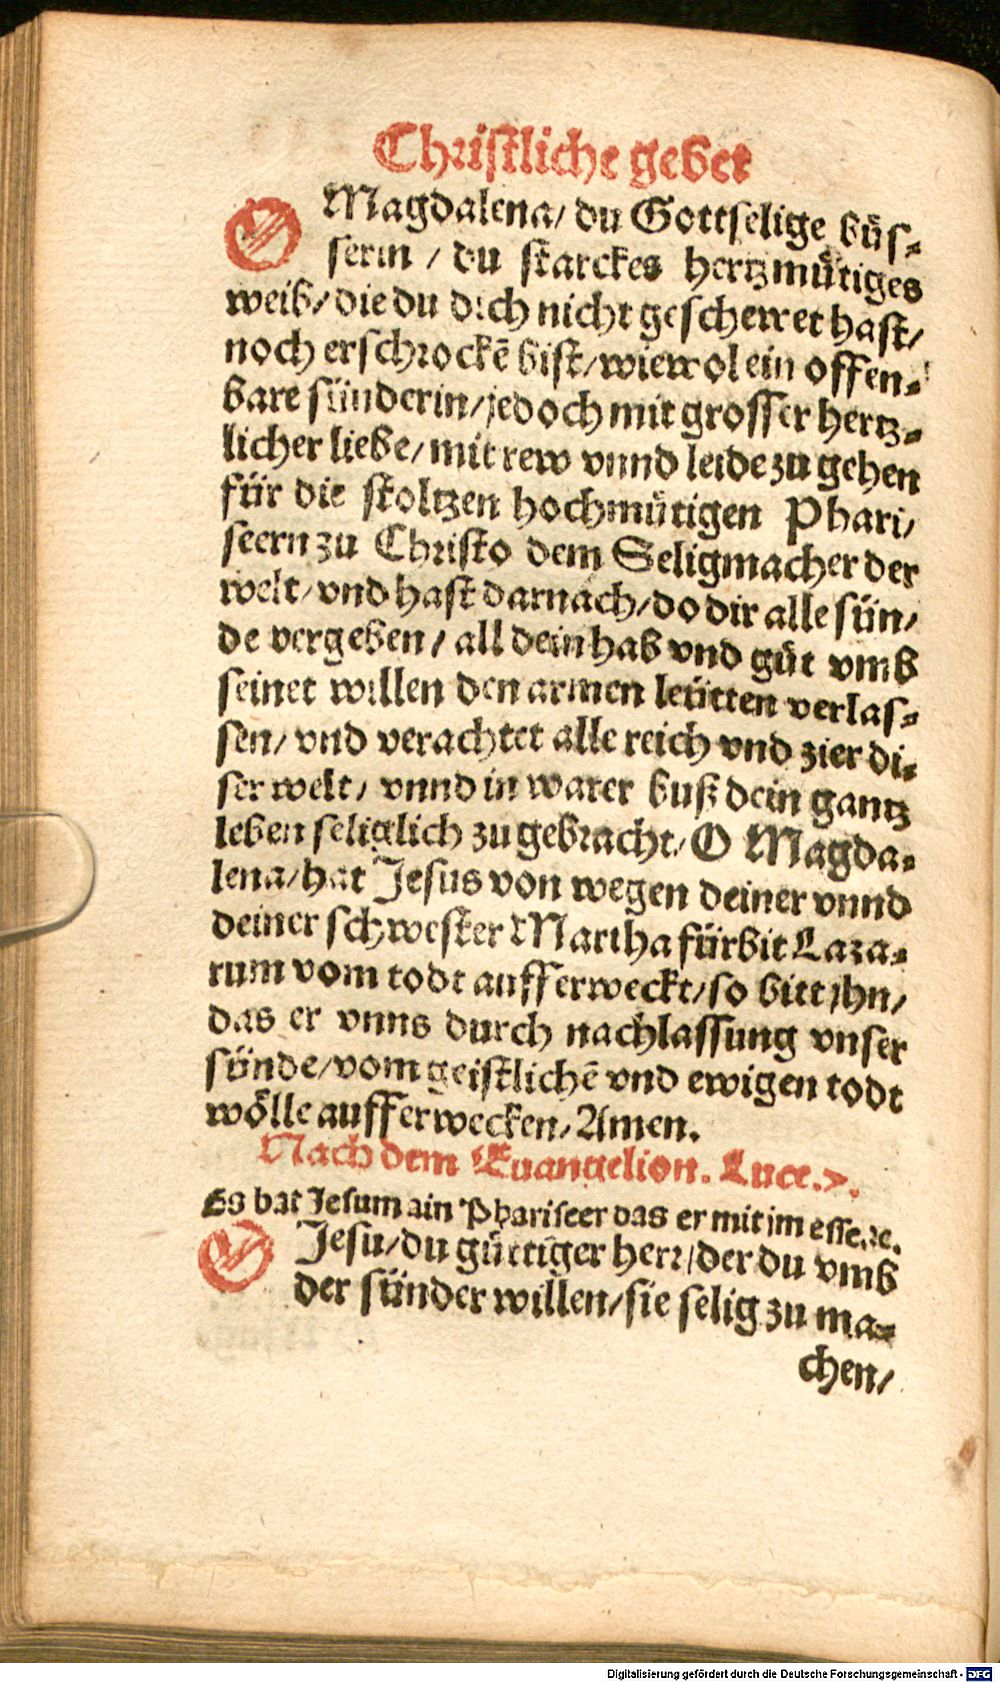 Christliche gebet
O Magdalena/ du Gottselige büs⸗
serin / du starckes hertzmuͤtiges
weib/ die du dich nicht geschewet hast/
noch erschrockē bist/ wiewol ein offen⸗
bare sünderin/ jedoch mit grosser hertz⸗
licher liebe/ mit rew vnnd leide zu gehen
für die stoltzen hochmuͤtigen Phari/
seern zu Christo dem Seligmacher der
welt/ vnd hast darnach/ do dir alle sün/
de vergeben/ all dein hab vnd guͤt vmb
seinet willen den armen leütten verlas⸗
sen/ vnd verachtet alle reich vnd zier di⸗
ser welt/ vnnd in warer buß dein gantz
leben seliglich zu gebracht/ O Magda⸗
lena/ hat Jesus von wegen deiner vnnd
deiner schwester Martha fürbit Laza⸗
rum vom todt aufferweckt/ so bitt jhn/
das er vnns durch nachlassung vnser
sünde/ vom geistlichē vnd ewigen todt
woͤlle aufferwecken/ Amen.
Nach dem Euangelion. Luce. 7.
Es bat Jesum ain Phariseer das er mit im esse. ꝛc.
O Jesu/ du guͤttiger herr/ der du vmb
der sünder willen/ sie selig zu ma⸗
chen/
Digitalisierung gefördert durch die Deutsche Forschungsgemeinschaft - DFG